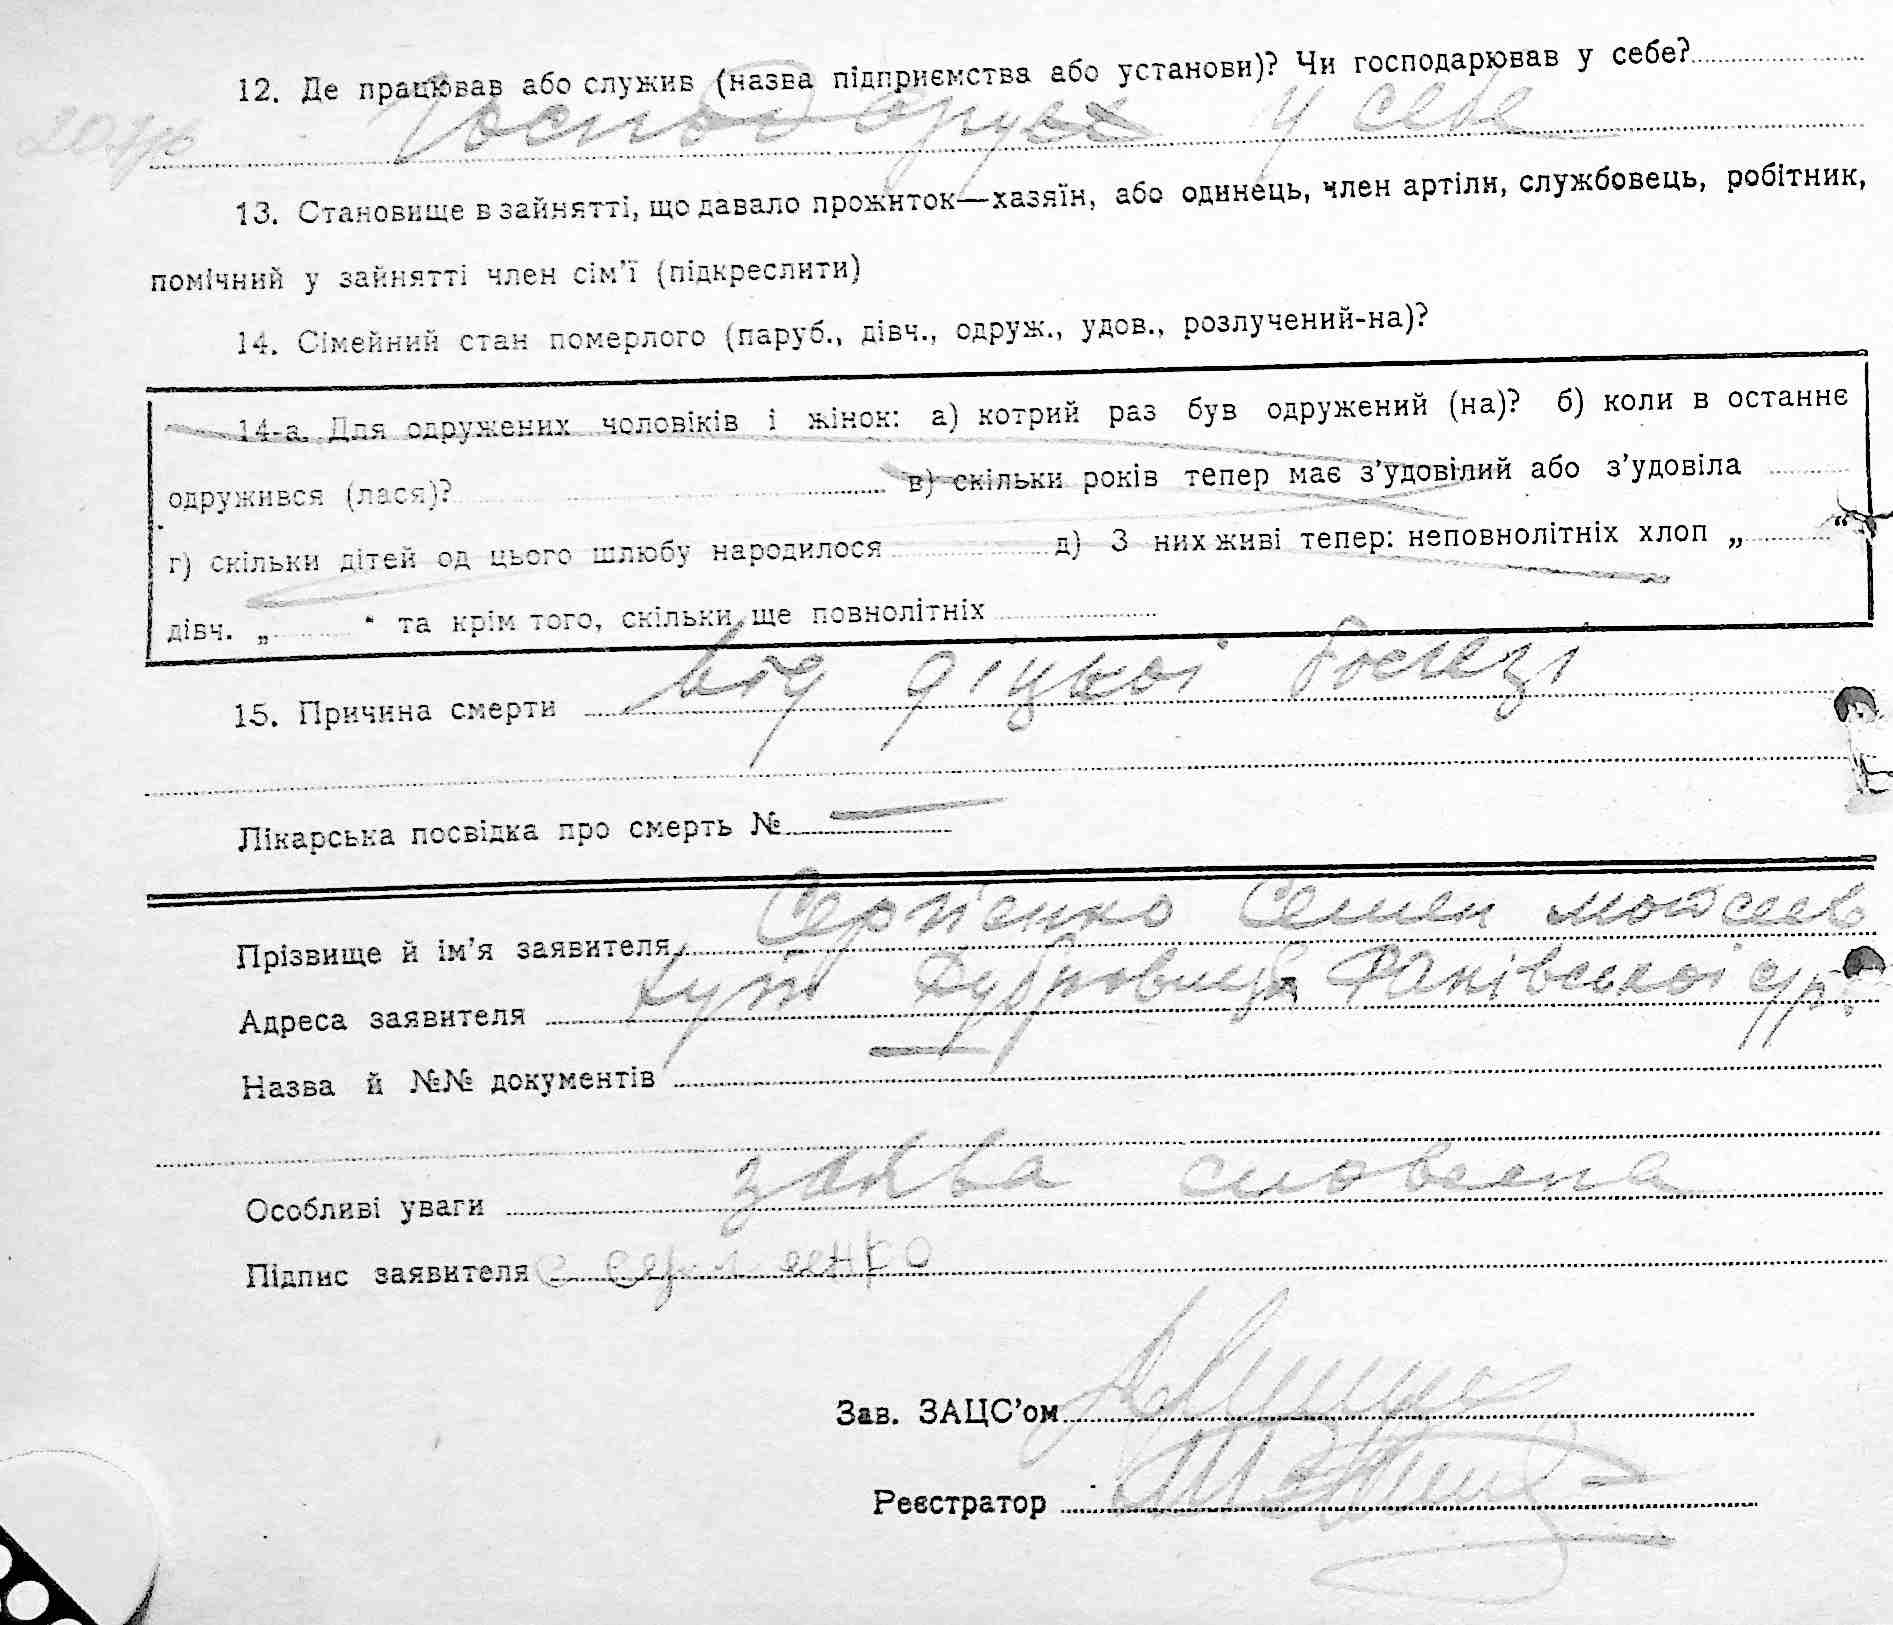 12. Де працював або служив (назва підприємства або установи)? Чи господарював у себе?
Господарує у себе
13. Становище в зайнятті, що давало прожиток—хазяїн, або одинець, член артіли, службовець, робітник,
помічний у зайнятті член сім’ї (підкреслити)
14. Сімейний стан померлого (паруб., дівч., одруж., удов., розлучений-на)?
14-а. Для одружених чоловіків і жінок: а) котрий раз був одружений (на)? б) коли в останнє
одружився (лася)? в) скільки років тепер має з’удовілий або з’удовіла
г) скільки дітей од цього шлюбу народилося д) З них живі тепер: неповнолітніх хлоп „ “
дівч. „ “ та крім того, скільки ще повнолітніх
15. Причина смерти від діцькоі болезі
Лікарська посвідка про смерть № —
Прізвище й ім’я заявителя Сергіенко Семен мойсеев
Адреса заявителя хут Дубровица с/р
Назва й №№ документів
Особливі уваги заява словесна
Підпис заявителя С Сергиенко
Зав. ЗАЦС’ом
Реєстратор